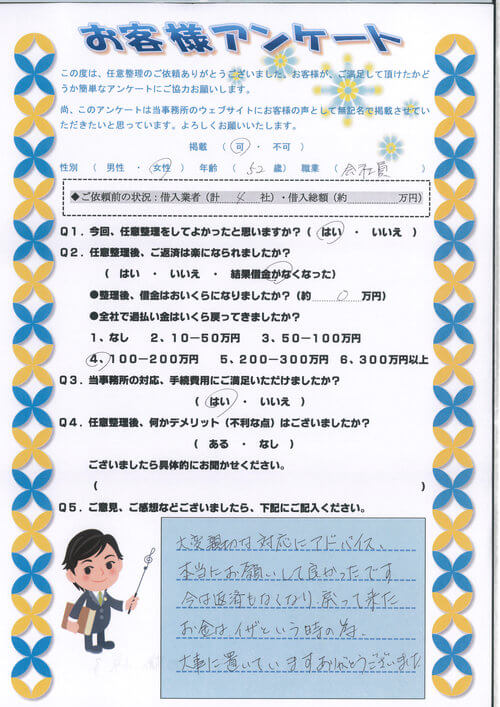 お客様アンケート
この度は、任意整理のご依頼ありがとうございました。お客様が、ご満足して頂けたかど
うか簡単なアンケートにご協力お願いします。
尚、このアンケートは当事務所のウェブサイトにお客様の声として無記名で掲載させてい
ただきたいと思っています。よろしくお願いいたします。
掲載 ( 可 ・ 不可 )
性別 ( 男性 ・ 女性 ) 年齢 ( 52 歳) 職業 ( 会社員 )
◆ご依頼前の状況：借入業者（計 4 社）・借入総額（約 万円）
Q1．今回、任意整理をしてよかったと思いますか？（ はい ・ いいえ ）
Q2．任意整理後、ご返済は楽になられましたか？
（ はい ・ いいえ ・ 結果借金がなくなった）
●整理後、借金はおいくらになりましたか？（約 0 万円）
●全社で過払い金はいくら戻ってきましたか？
1、なし 2、10－50万円 3、50－100万円
4、100－200万円 5、200－300万円 6、300万円以上
Q3．当事務所の対応、手続費用にご満足いただけましたか？
（ はい ・ いいえ ）
Q4．任意整理後、何かデメリット（不利な点）はございましたか？
（ ある ・ なし ）
ございましたら具体的にお聞かせください。
（ ）
Q5．ご意見、ご感想などございましたら、下記にご記入ください。
大変親切な対応にアドバイス、
本当にお願いして良かったです
今は返済もなくなり、戻って来た
お金はイザという時の為、
大事に置いていますありがとうございました